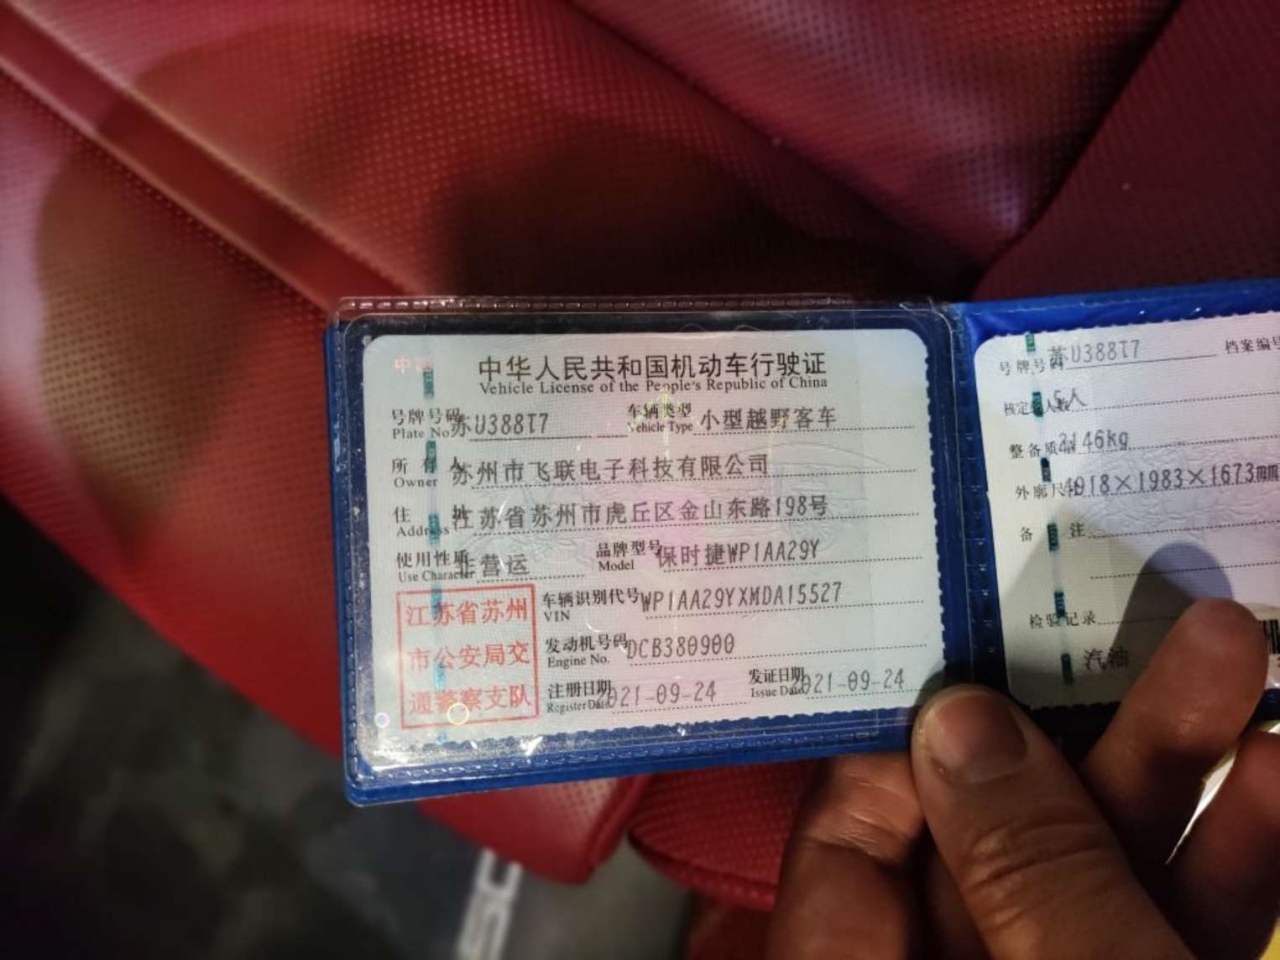 中华人民共和国机动车行驶证
Vehicle License of the People's Republic of China
号牌号码 苏U388T7 车辆类型 小型越野客车
Plate No. Vehicle Type
所有人 苏州市飞联电子科技有限公司
Owner
住址 江苏省苏州市虎丘区金山东路198号
Address
使用性质 非营运 品牌型号 保时捷WP1AA29Y
Use Character Model
车辆识别代号 WP1AA29YXMDA15527
VIN
发动机号码 DCB380900
Engine No.
注册日期 2021-09-24 发证日期 2021-09-24
Register Date Issue Date
江苏省苏州
市公安局交
通警察支队
号牌号码 苏U388T7 档案编号
核定载人数 5人
整备质量 2146kg
外廓尺寸 4918×1983×1673mm
备注
检验记录
汽油